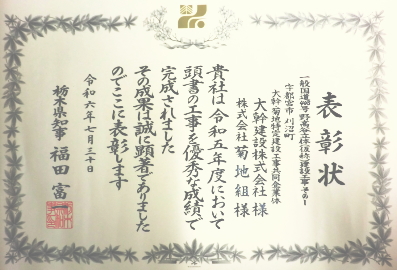 表彰状
一般国道408号 野高谷立体復旧補強工事その1
宇都宮市 刈沼町
大幹・菊地特定建設工事共同企業体
大幹建設株式会社 様
株式会社 菊地組 様
貴社は令和五年度において
頭書の工事を優秀な成績で
完成されました
その成果は誠に顕著でありました
のでここに表彰します
令和六年七月三十日
栃木県知事 福田富一